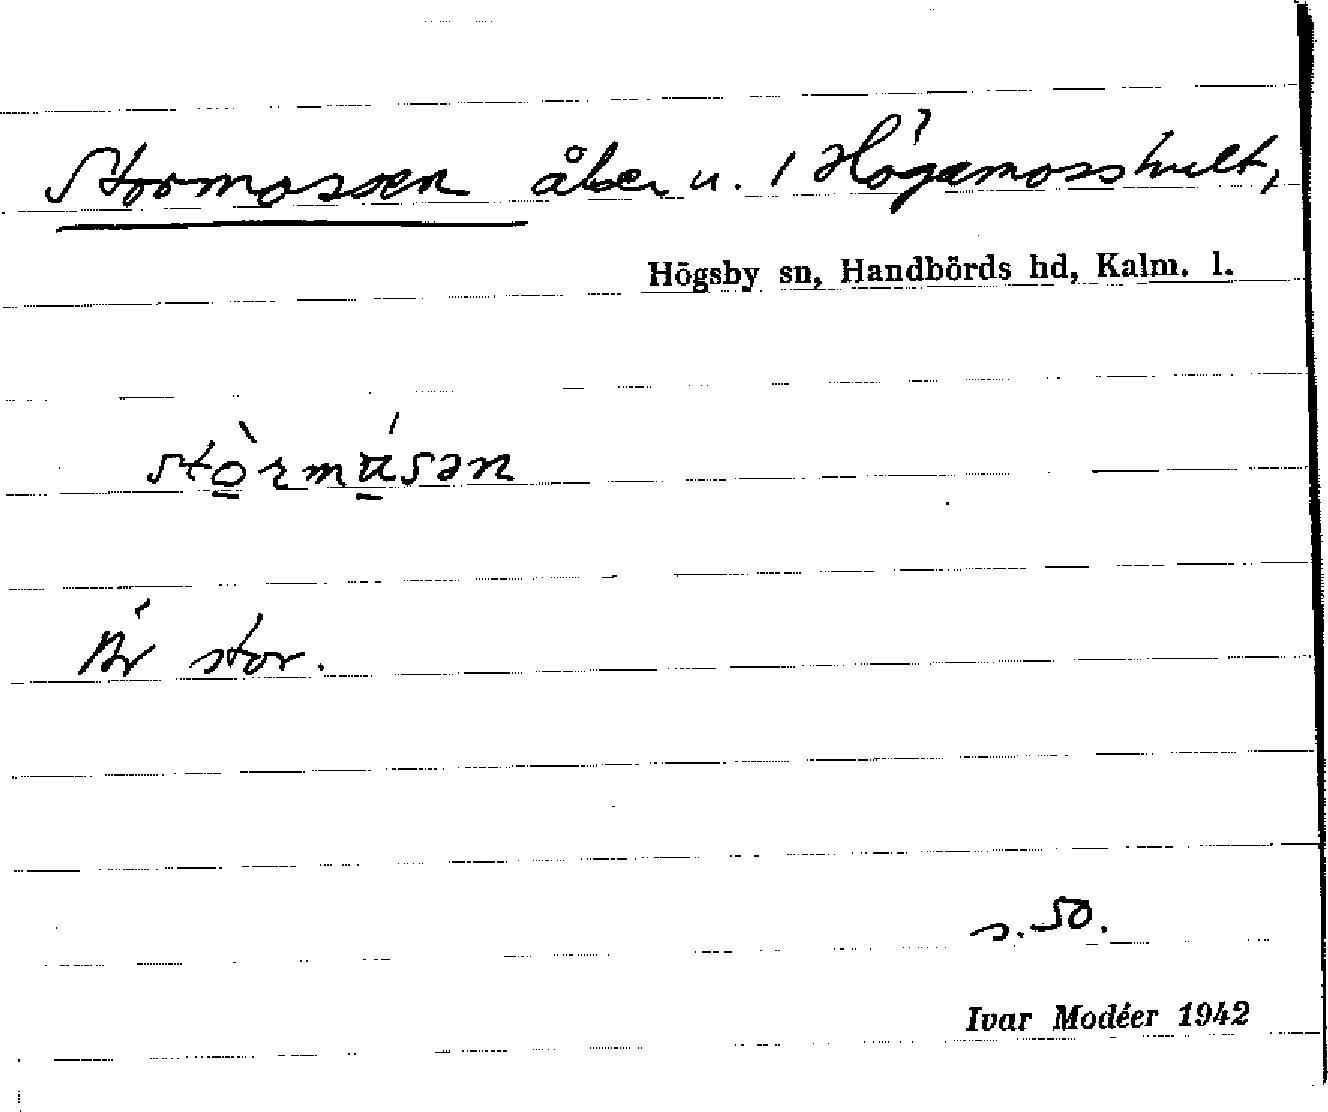 Stormossen åker u. 1 Högemosshult,
Högsby sn, Handbörds hd, Kalm. l.
Är stor.
s. 50.
Ivar Modéer 1942